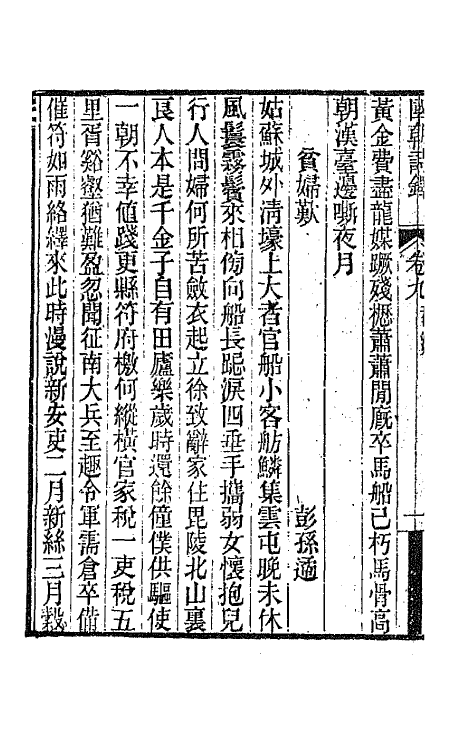 國朝詩鐸 卷九
黃金費盡龍媒蹶殘櫪蕭蕭閒廐卒馬船已朽馬骨高
朝漢臺邊嘶夜月
貧婦歎 彭孫遹
姑蘇城外淸壕上大者官船小客舫鱗集雲屯晚未休
風鬟霧鬢來相傍向船長跽淚四垂手攜弱女懷抱兒
行人問婦何所苦斂衣起立徐致辭家住毘陵北山裏
良人本是千金子自有田廬樂歲時還餘僮僕供驅使
一朝不幸値踐更縣符府檄何縱橫官家稅一吏稅五
里胥谿壑猶難盈忽聞征南大兵至趣令軍需倉卒備
催符如雨絡繹來此時漫說新安吏二月新絲三月穀